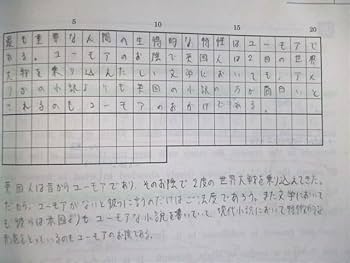 5 10 15 20
最も重要な人間の生物的な特性はユーモアで
ある。ユーモアのお陰で英国人は2回の世界
大戦を乗り込んだし、文学においても、アメ
リカの小説よりも英国の小説の方が面白いと
されるのもユーモアのおかげである。
英国人は昔からユーモアであり、そのお陰で2度の世界大戦を乗り込えてきた。
だから、ユーモアがないと彼らに言うのだけはご法度であろう。また文学において
も彼らは米国よりもユーモアな小説を書いていて、現代小説において
をとっているのもユーモアのお陰である。